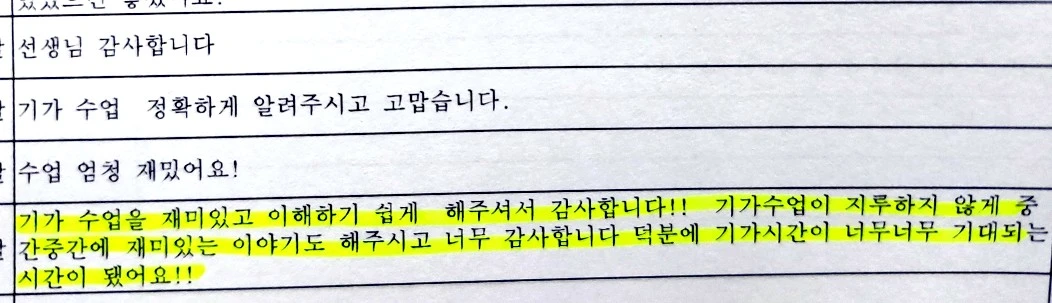 선생님 감사합니다
기가 수업  정확하게 알려주시고 고맙습니다.
수업 엄청 재밌어요!
기가 수업을 재미있고 이해하기 쉽게  해주셔서 감사합니다!!  기가수업이 지루하지 않게 중
간중간에 재미있는 이야기도 해주시고 너무 감사합니다 덕분에 기가시간이 너무너무 기대되는
시간이 됐어요!!